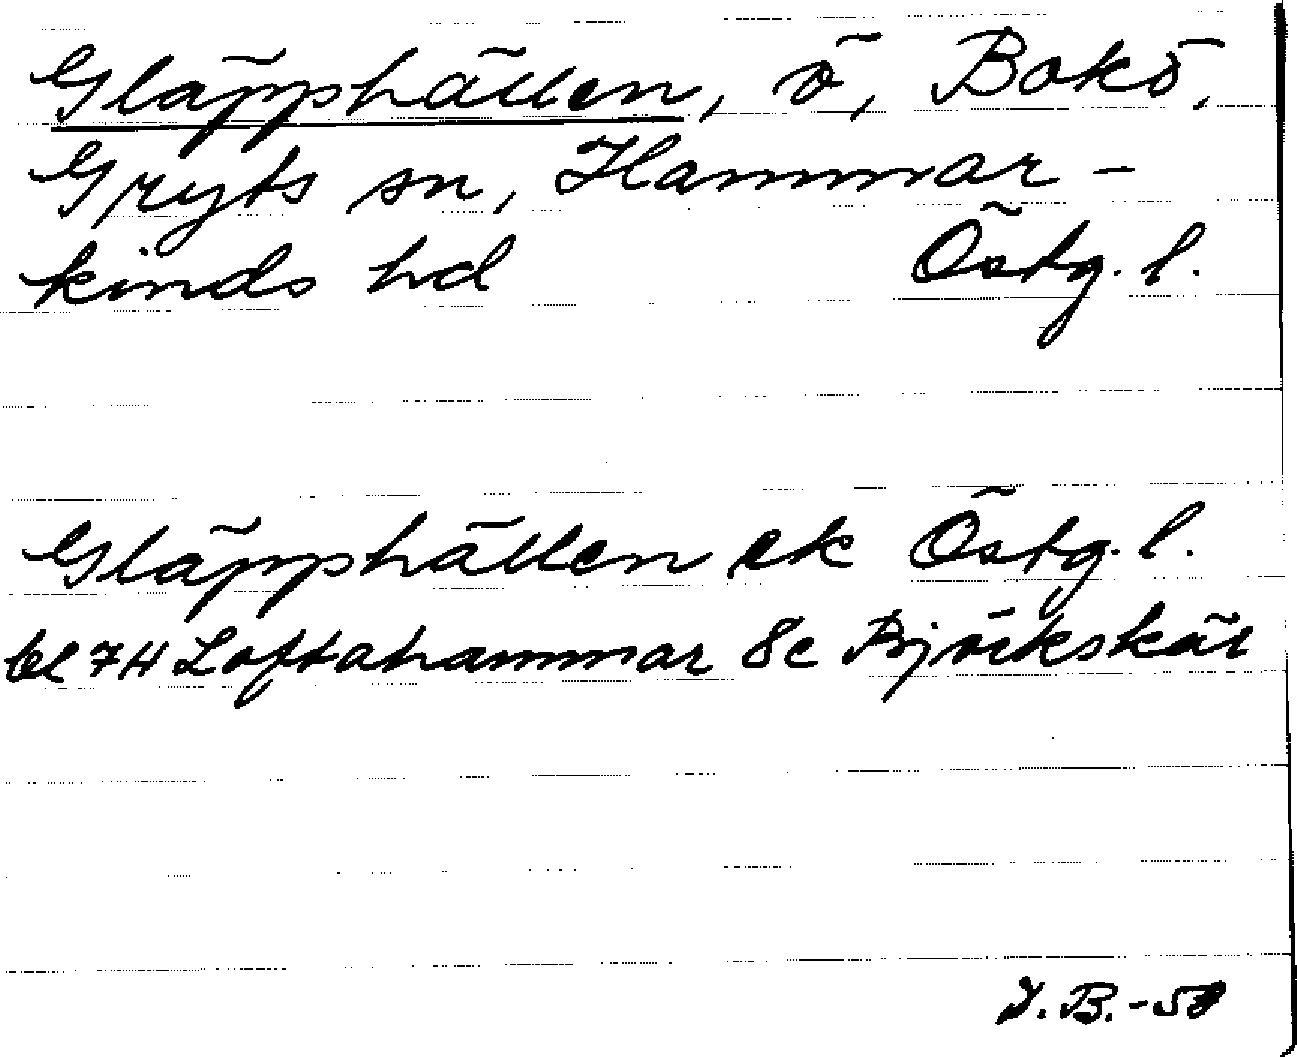 Gläpphällen, ö, Bokö,
Gryts sn, Hammar-
kinds hd Östg. l.
Gläpphällen ek Östg. l.
bl 7H Loftahammar 8c Björkskär
J.B.-50